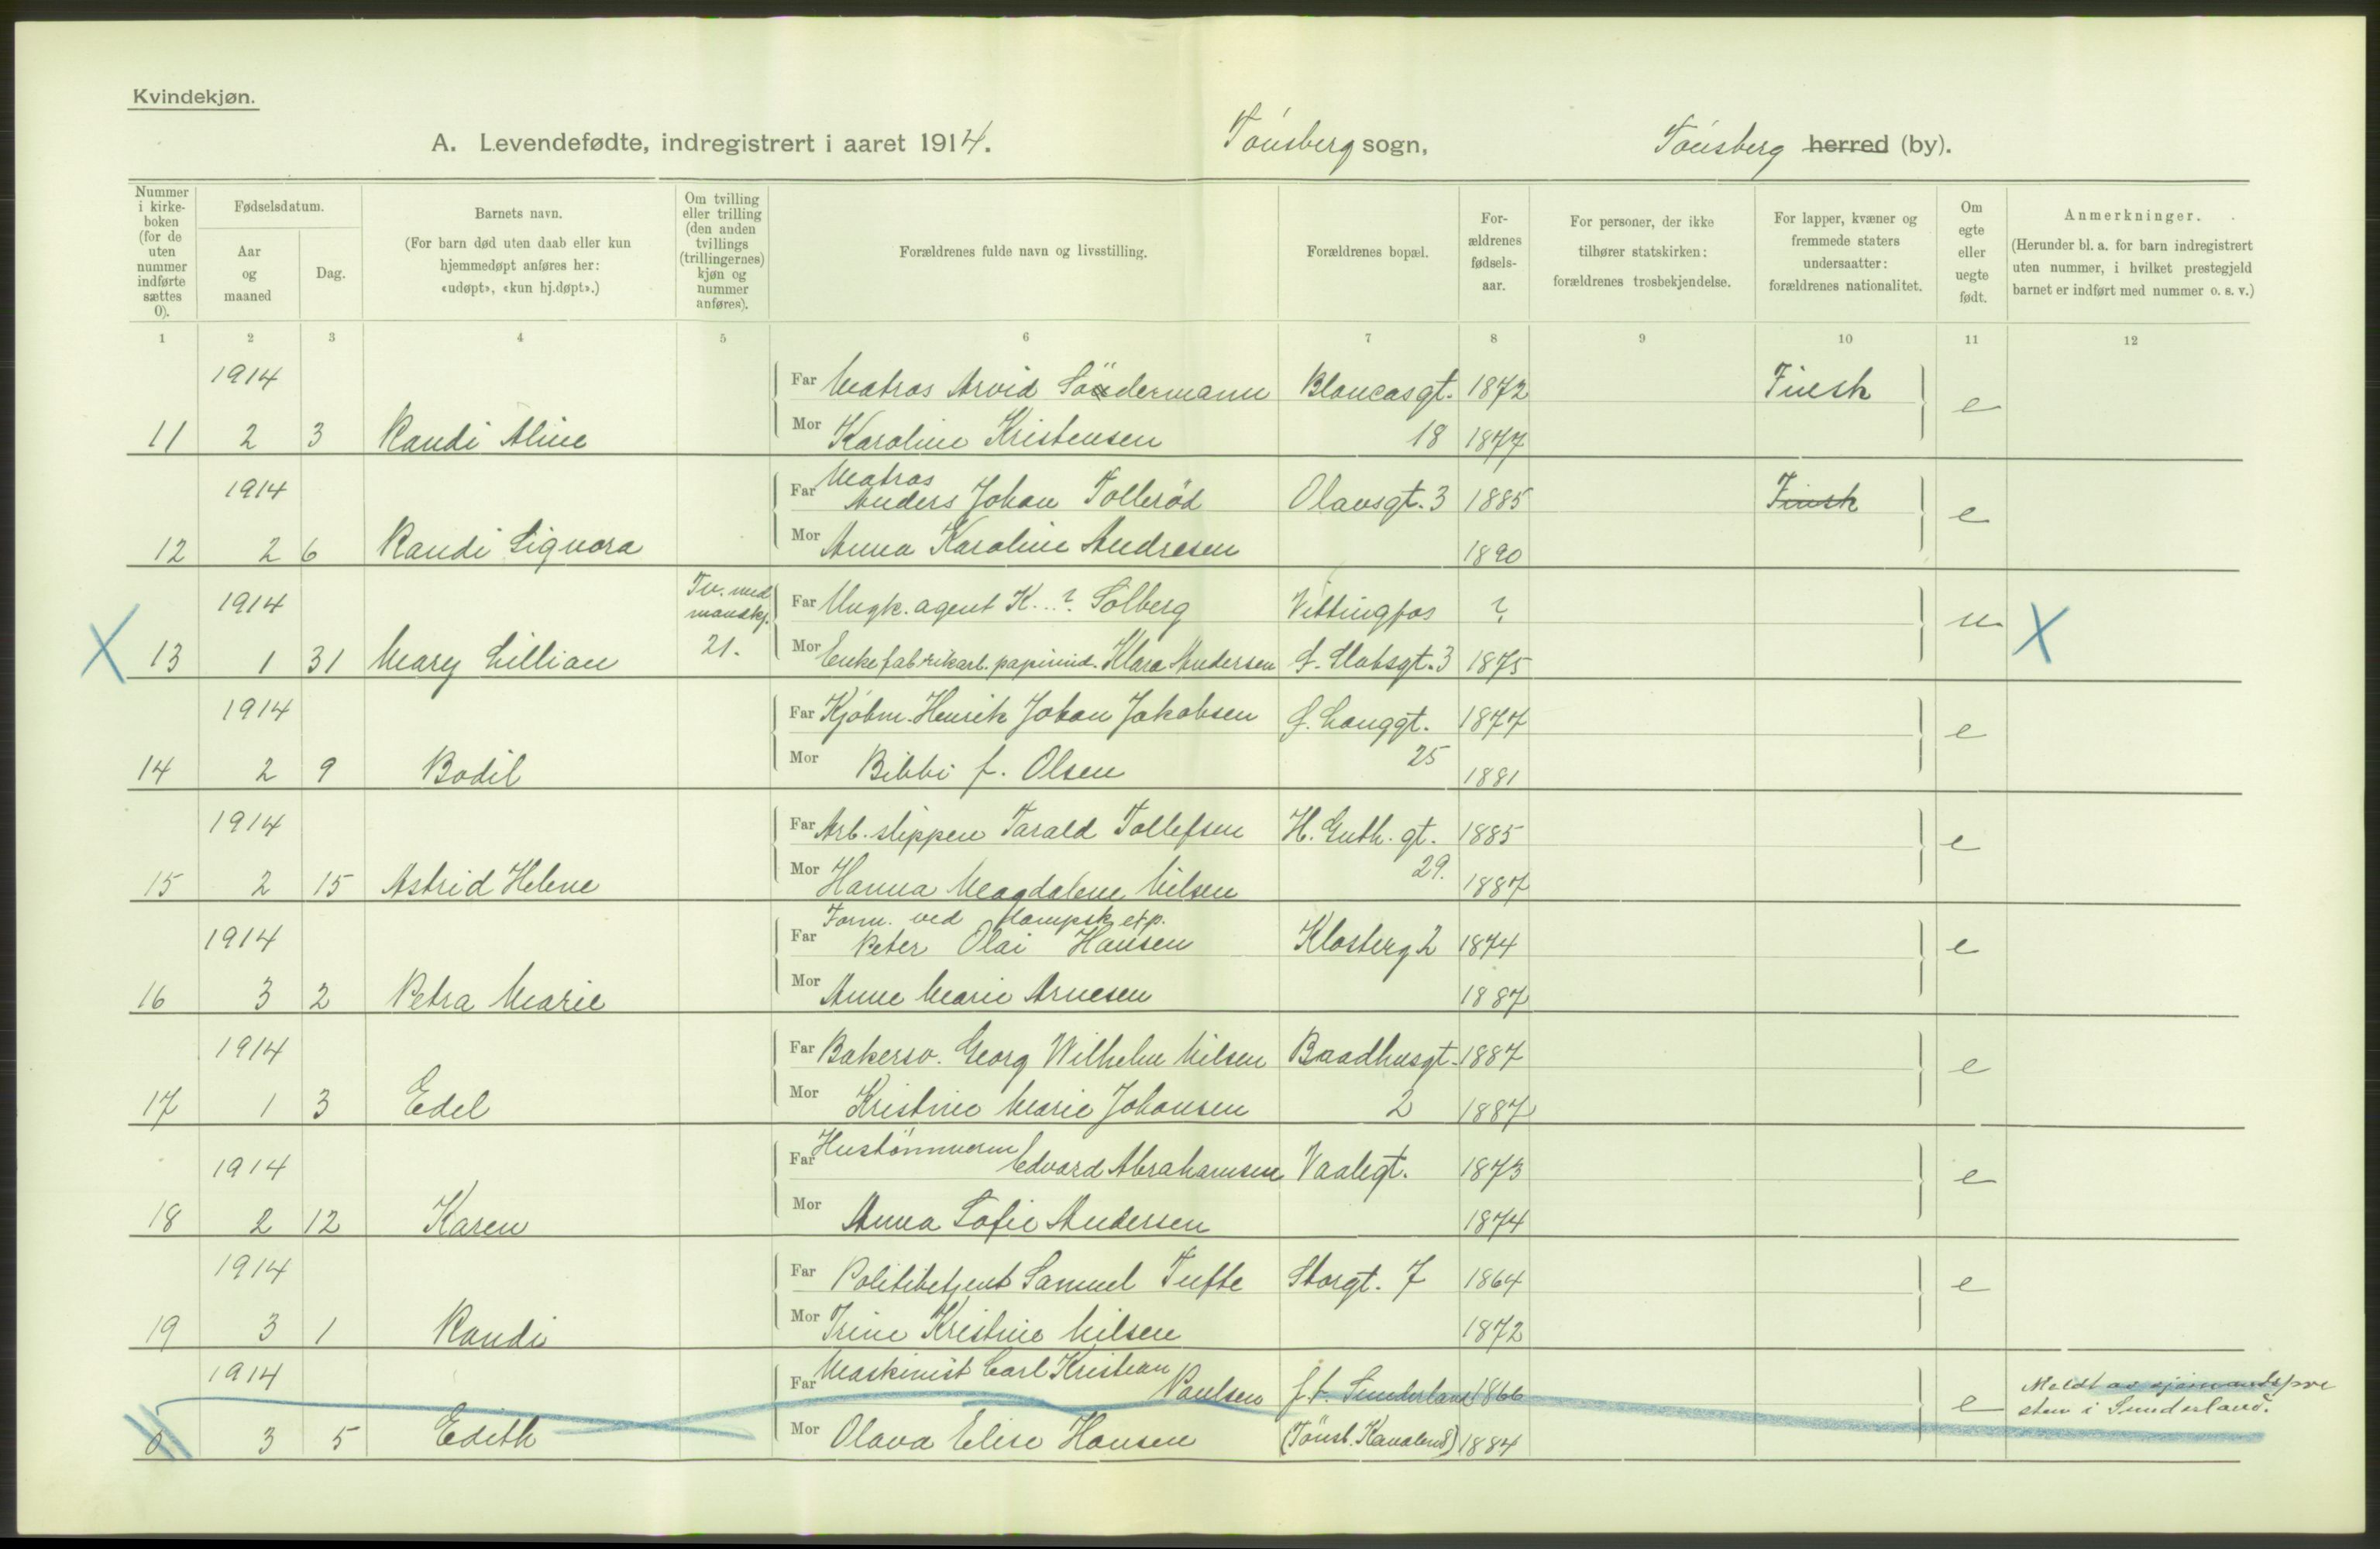 Kvindekjøn.
A. Levendefødte, indregistrert i aaret 1914. Tønsberg sogn, Tønsberg herred (by).
Nummer i kirke-boken (for de uten nummer indførte sættes 0).
Fødselsdatum.
Aar og maaned
Dag.
Barnets navn.
(For barn død uten daab eller kun hjemmedøpt anføres her: «udøpt», «kun hj.døpt».)
Om tvilling eller trilling (den anden tvillings (trillingernes) kjøn og nummer anføres).
Forældrenes fulde navn og livsstilling.
Forældrenes bopæl.
For-ældrenes fødsels-aar.
For personer, der ikke tilhører statskirken: forældrenes trosbekjendelse.
For lapper, kvæner og fremmede staters undersaatter: forældrenes nationalitet.
Om egte eller uegte født.
Anmerkninger.
(Herunder bl. a. for barn indregistrert uten nummer, i hvilket prestegjeld barnet er indført med nummer o. s. v.)
1 2 3 4 5 6 7 8 9 10 11 12
1914 Far Matros Arvid Södermann Blancasgt. 1872 Finsk e
11 2 3 Randi Aline Mor Karoline Kristensen 18 1877
Matros
1914 Far Anders Johan Tollerød Olavsgt. 3 1885 Finsk e
12 2 6 Randi Signora Mor Anna Karoline Andresen 1890
1914 Tv. med mandkj. Far Ungk. agent K...? Solberg Vittingfos ? u
X 13 1 31 Mary Lillian 21. Mor Enke fabrikarb. papirind. Klara Andersen f. Slotsgt. 3 1875 X
1914 Far Kjøbm. Henrik Johan Jakobsen f. Langgt. 1877 e
14 2 9 Bodil Mor Bibbi f. Olsen 25 1881
1914 Far Arb. slippen Tarald Tollefsen H. Guth. gt. 1885 e
15 2 15 Astrid Helene Mor Hanna Magdalene Nilsen 29. 1887
Form. ved
1914 Far Peter Olai Hansen Klosterg 2 1874 e
16 3 2 Petra Marie Mor Anne Marie Arnesen 1887
1914 Far Bakersv. Georg Wilhelm Nilsen Baadhusgt. 1887 e
17 1 3 Edel Mor Kristine Marie Johansen 2 1887
1914 Far Edvard Abrahamsen Vaalegt. 1873 e
18 2 12 Karen Mor Anna Sofie Andersen 1874
1914 Far Politibetjent Samuel Tufte Storgt. 7 1864 e
19 3 1 Randi Mor Trine Kristine Nilsen 1872
Maskinist Carl Kristian
1914 Far Paulsen f. t. Sunderland 1866 e Meldt av sjømandspre
0 3 5 Edith Mor Olava Elise Hansen (Tönsb. Kanalen8) 1884 sten i Sunderland.